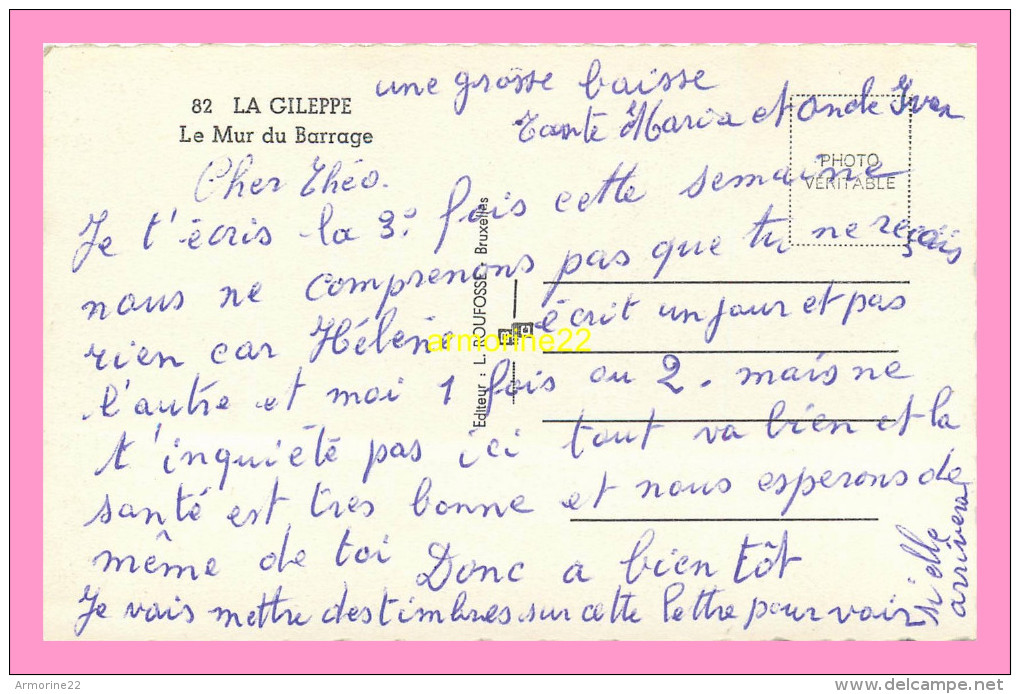 82 LA GILEPPE
Le Mur du Barrage
PHOTO
VÉRITABLE
Editeur : L. ROUFOSSE - Bruxelles
une grôsse baisse
Tante Maria et Oncle Yvan
Cher Théo.
Je t'écris la 3.° fois cette semaine
nous ne comprenons pas que tu ne reçois
rien car Hélène écrit un jour et pas
l'autre et moi 1 fois ou 2. mais ne
t'inquiété pas ici tout va bien et la
santé est très bonne et nous esperons de
même de toi Donc a bien tôt
Je vais mettre des timbres sur cette lettre pour voir
si elle
arrivera
armorine22
Armorine22
delcampe.net